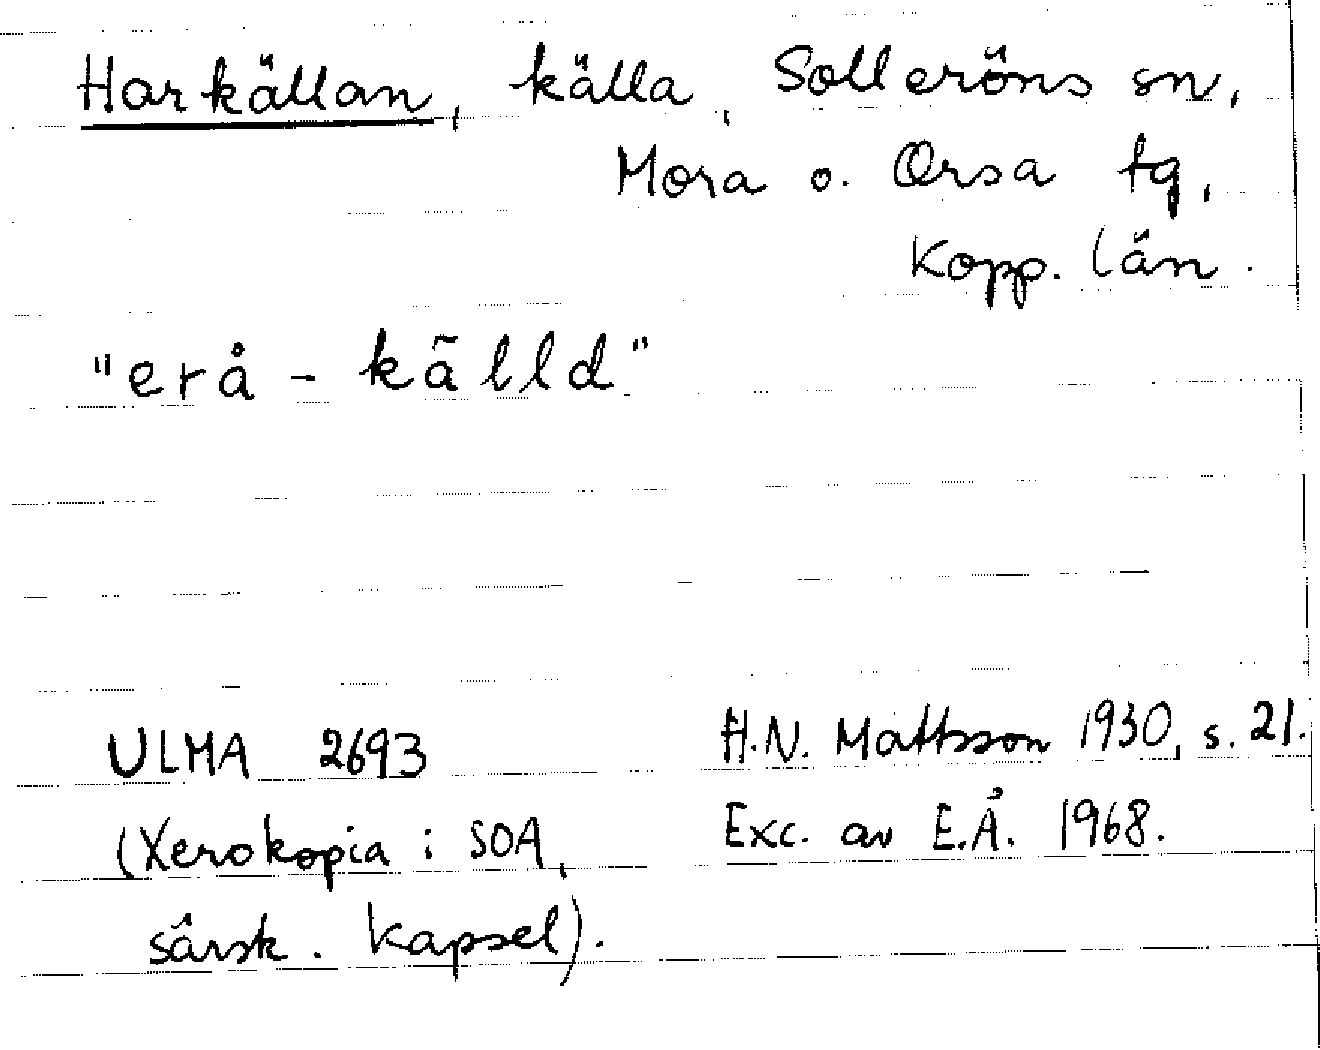 Harkällan, källa, Solleröns sn,
Mora o. Orsa tg,
Kopp. län.
"erå - källd"
ULMA 2693
H.N. Mattsson 1930, s. 21.
(Xerokopia i SOA,
Exc. av E.Å. 1968.
särsk. kapsel).